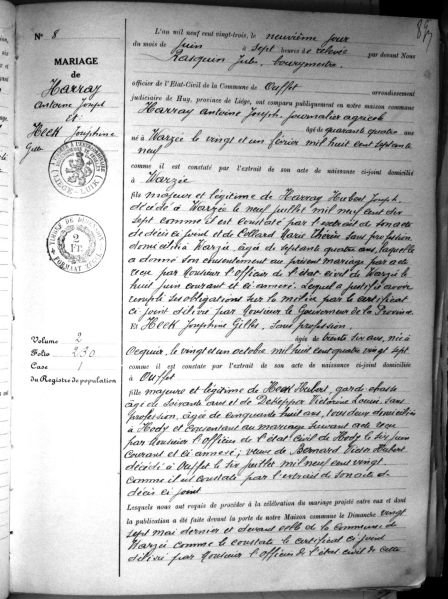 N° 8
MARIAGE
DE
Harray
Antoine Joseph
Et
Heck Josephine
TIMBRE DE DIMENSION
2 FR.
Volume 2
Folio 230
Case 1
du Registre de population
L'an mil neuf cent vingt-trois, le neuvième jour
du mois de Juin à sept heures de relevée par devant Nous
bourgmestre
officier de l'Etat-Civil de la Commune de Ouffet arrondissement
judiciaire de Huy, province de Liége, ont comparu publiquement en notre maison commune
Harray Antoine Joseph, journalier agricole
âgé de quarante quatre ans
né à Warzée le vingt et un février mil huit cent septante
neuf
comme il est constaté par l'extrait de son acte de naissance ci-joint domicilié
à Warzée
fils majeur et légitime de Harray Hubert Joseph,
décédé à Warzée le neuf juillet mil neuf cent dix
sept comme il est constaté par l'extrait de son acte
de décès ci joint et de Collard Marie Thérèse sans profession
domiciliée à Warzée, âgée de septante quatre ans, laquelle
a donné son consentement au présent mariage par acte
reçu par Monsieur l'officier de l'état civil de Warzée le
huit juin courant et ci annexé. Lequel a justifié avoir
rempli ses obligations sur la milice par le certificat
ci joint délivré par Monsieur le Gouverneur de la Province.
Et Heck Josephine sans profession.
âgée de trente six ans, née à
Ocquier, le vingt et un octobre mil huit cent quatre vingt sept
comme il est constaté par l'extrait de son acte de naissance ci-joint domiciliée
à Ouffet
fille majeure et légitime de Heck Hubert, garde chasse
âgé de soixante ans et de Victorine Louise, sans
profession, âgée de cinquante huit ans, tous deux domiciliés
à Hody et consentant au mariage suivant acte reçu
par Monsieur l'officier de l'état civil de Hody le six juin
courant et ci annexé; veuve de Bernard Hubert
décédé à Ouffet le six juillet mil neuf cent vingt
comme il est constaté par l'extrait de son acte de
décès ci joint
Lesquels nous ont requis de procéder à la célébration du mariage projeté entre eux et dont
la publication a été faite devant la porte de notre Maison commune le Dimanche vingt
sept mai dernier et devant celle de la commune de
Warzée comme le constate le certificat ci joint
délivré par Monsieur l'officier de l'état civil de cette